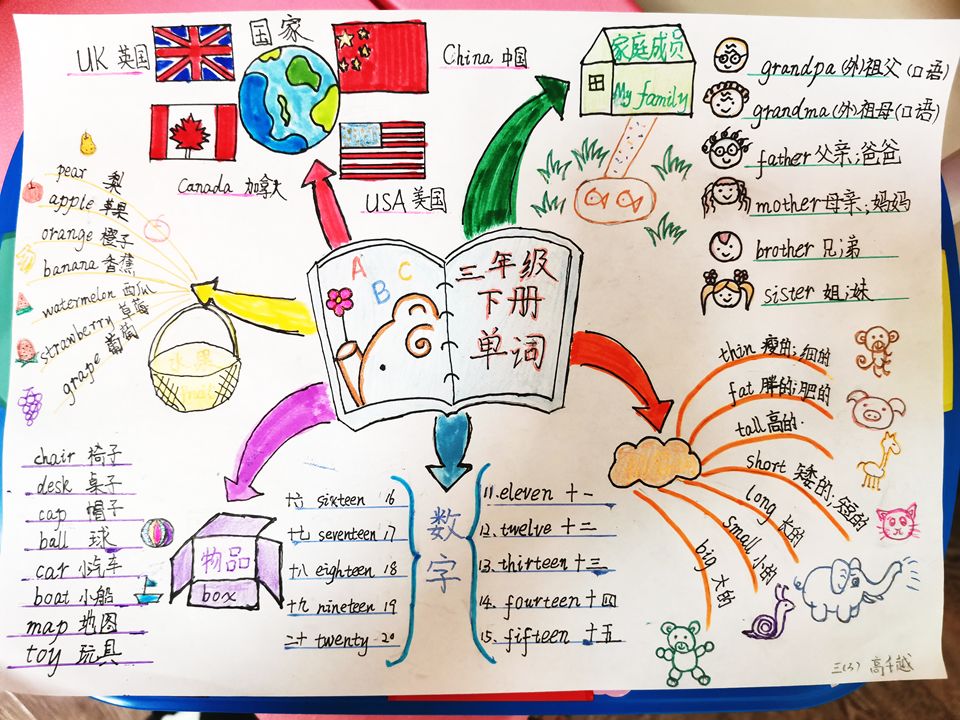 国家
UK 英国
China 中国
Canada 加拿大
USA 美国
家庭成员
My family
grandpa (外)祖父 (口语)
grandma (外)祖母 (口语)
father 父亲;爸爸
mother 母亲;妈妈
brother 兄弟
sister 姐;妹
pear 梨
apple 苹果
orange 橙子
banana 香蕉
watermelon 西瓜
strawberry 草莓
grape 葡萄
水果
A B C
三年级
下册
单词
thin 瘦的;细的
fat 胖的;肥的
tall 高的.
short 矮的;短的
long 长的
small 小的
big 大的
chair 椅子
desk 桌子
cap 帽子
ball 球
car 小汽车
boat 小船
map 地图
toy 玩具
物品
box
数字
十六 sixteen 16
十七 seventeen 17
十八 eighteen 18
十九 nineteen 19
二十 twenty 20
11. eleven 十一
12. twelve 十二
13. thirteen 十三
14. fourteen 十四
15. fifteen 十五
三(3) 高千越